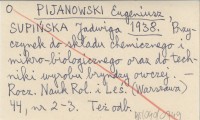 O PIJANOWSKI Eugeniusz
SUPIŃSKA Jadwiga 1938. Przy-
czynek do składu chemicznego i
mikro-biologicznego oraz do tech-
niki wyrobu bryndzy owczej. –
Rocz. Nauk Rol. i Leś. (Warszawa)
44, nr 2-3. Też odb.